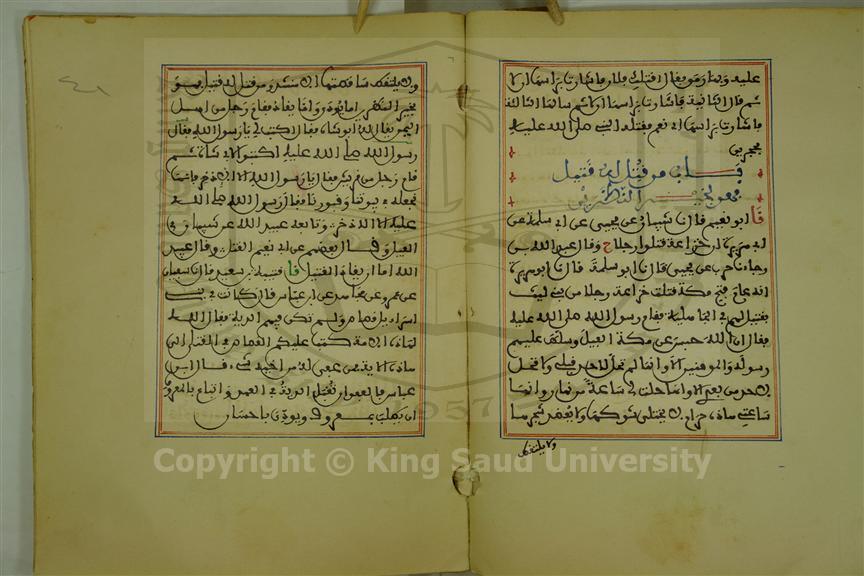 عليه وبها رمق فقال اقتلك فلان فاشارت براسها ان لا
ثم قال الثانية فاشارت براسها ان لا ثم سالها الثالثة
فاشارت براسها ان نعم فقتله النبي صلى الله عليه
بحجرين
باب من قتل له قتيل
فهو بخير النظرين
ابو نعيم قال نا شيبان عن يحيى عن ابي سلمة عن
ابي هريرة ان خزاعة قتلوا رجلا ح وقال عبد الله بن
رجاء نا حرب عن يحيى قال نا ابو سلمة قال نا ابو هريرة
انه عام فتح مكة قتلت خزاعة رجلا من بني ليث
بقتيل لهم في الجاهلية فقام رسول الله صلى الله عليه
فقال ان الله حبس عن مكة الفيل وسلط عليهم
رسوله والمومنين الا وانها لم تحل لاحد قبلي ولا تحل
لاحد من بعدي الا وانما احلت لي ساعة من نهار وانها
ساعتي هاذه حرام لا يختلى شوكها ولا يعضد شجرها
ولا يلتقط
ولا يلتقط ساقطتها الا منشد ومن قتل له قتيل فهو
بخير النظرين اما يودى واما يقاد فقام رجل من اهل
اليمن يقال له ابو شاه فقال اكتب لي يا رسول الله فقال
رسول الله صلى الله عليه اكتبوا لابي شاه ثم
قام رجل من قريش فقال يا رسول الله الا الاذخر فانما
نجعله في بيوتنا وقبورنا فقال رسول الله صلى الله
عليه الا الاذخر وتابعه عبيد الله عن شيبان في
الفيل وقال بعضهم عن ابي نعيم القتل وقال عبيد
الله اما ان يقاد اهل القتيل قتيبة بن سعيد قال نا سفيان
عن عمرو عن مجاهد عن ابن عباس قال كانت في بني
اسراءيل قصاص ولم تكن فيهم الدية فقال الله
لهاذه الامة كتب عليكم القصاص في القتلى الى
هاذه الاية فمن عفي له من اخيه شيء قال ابن
عباس فالعفو ان يقبل الدية في العمد واتباع بالمعروف
ان يطلب بمعروف ويودي باحسان
1957
Copyright © King Saud University